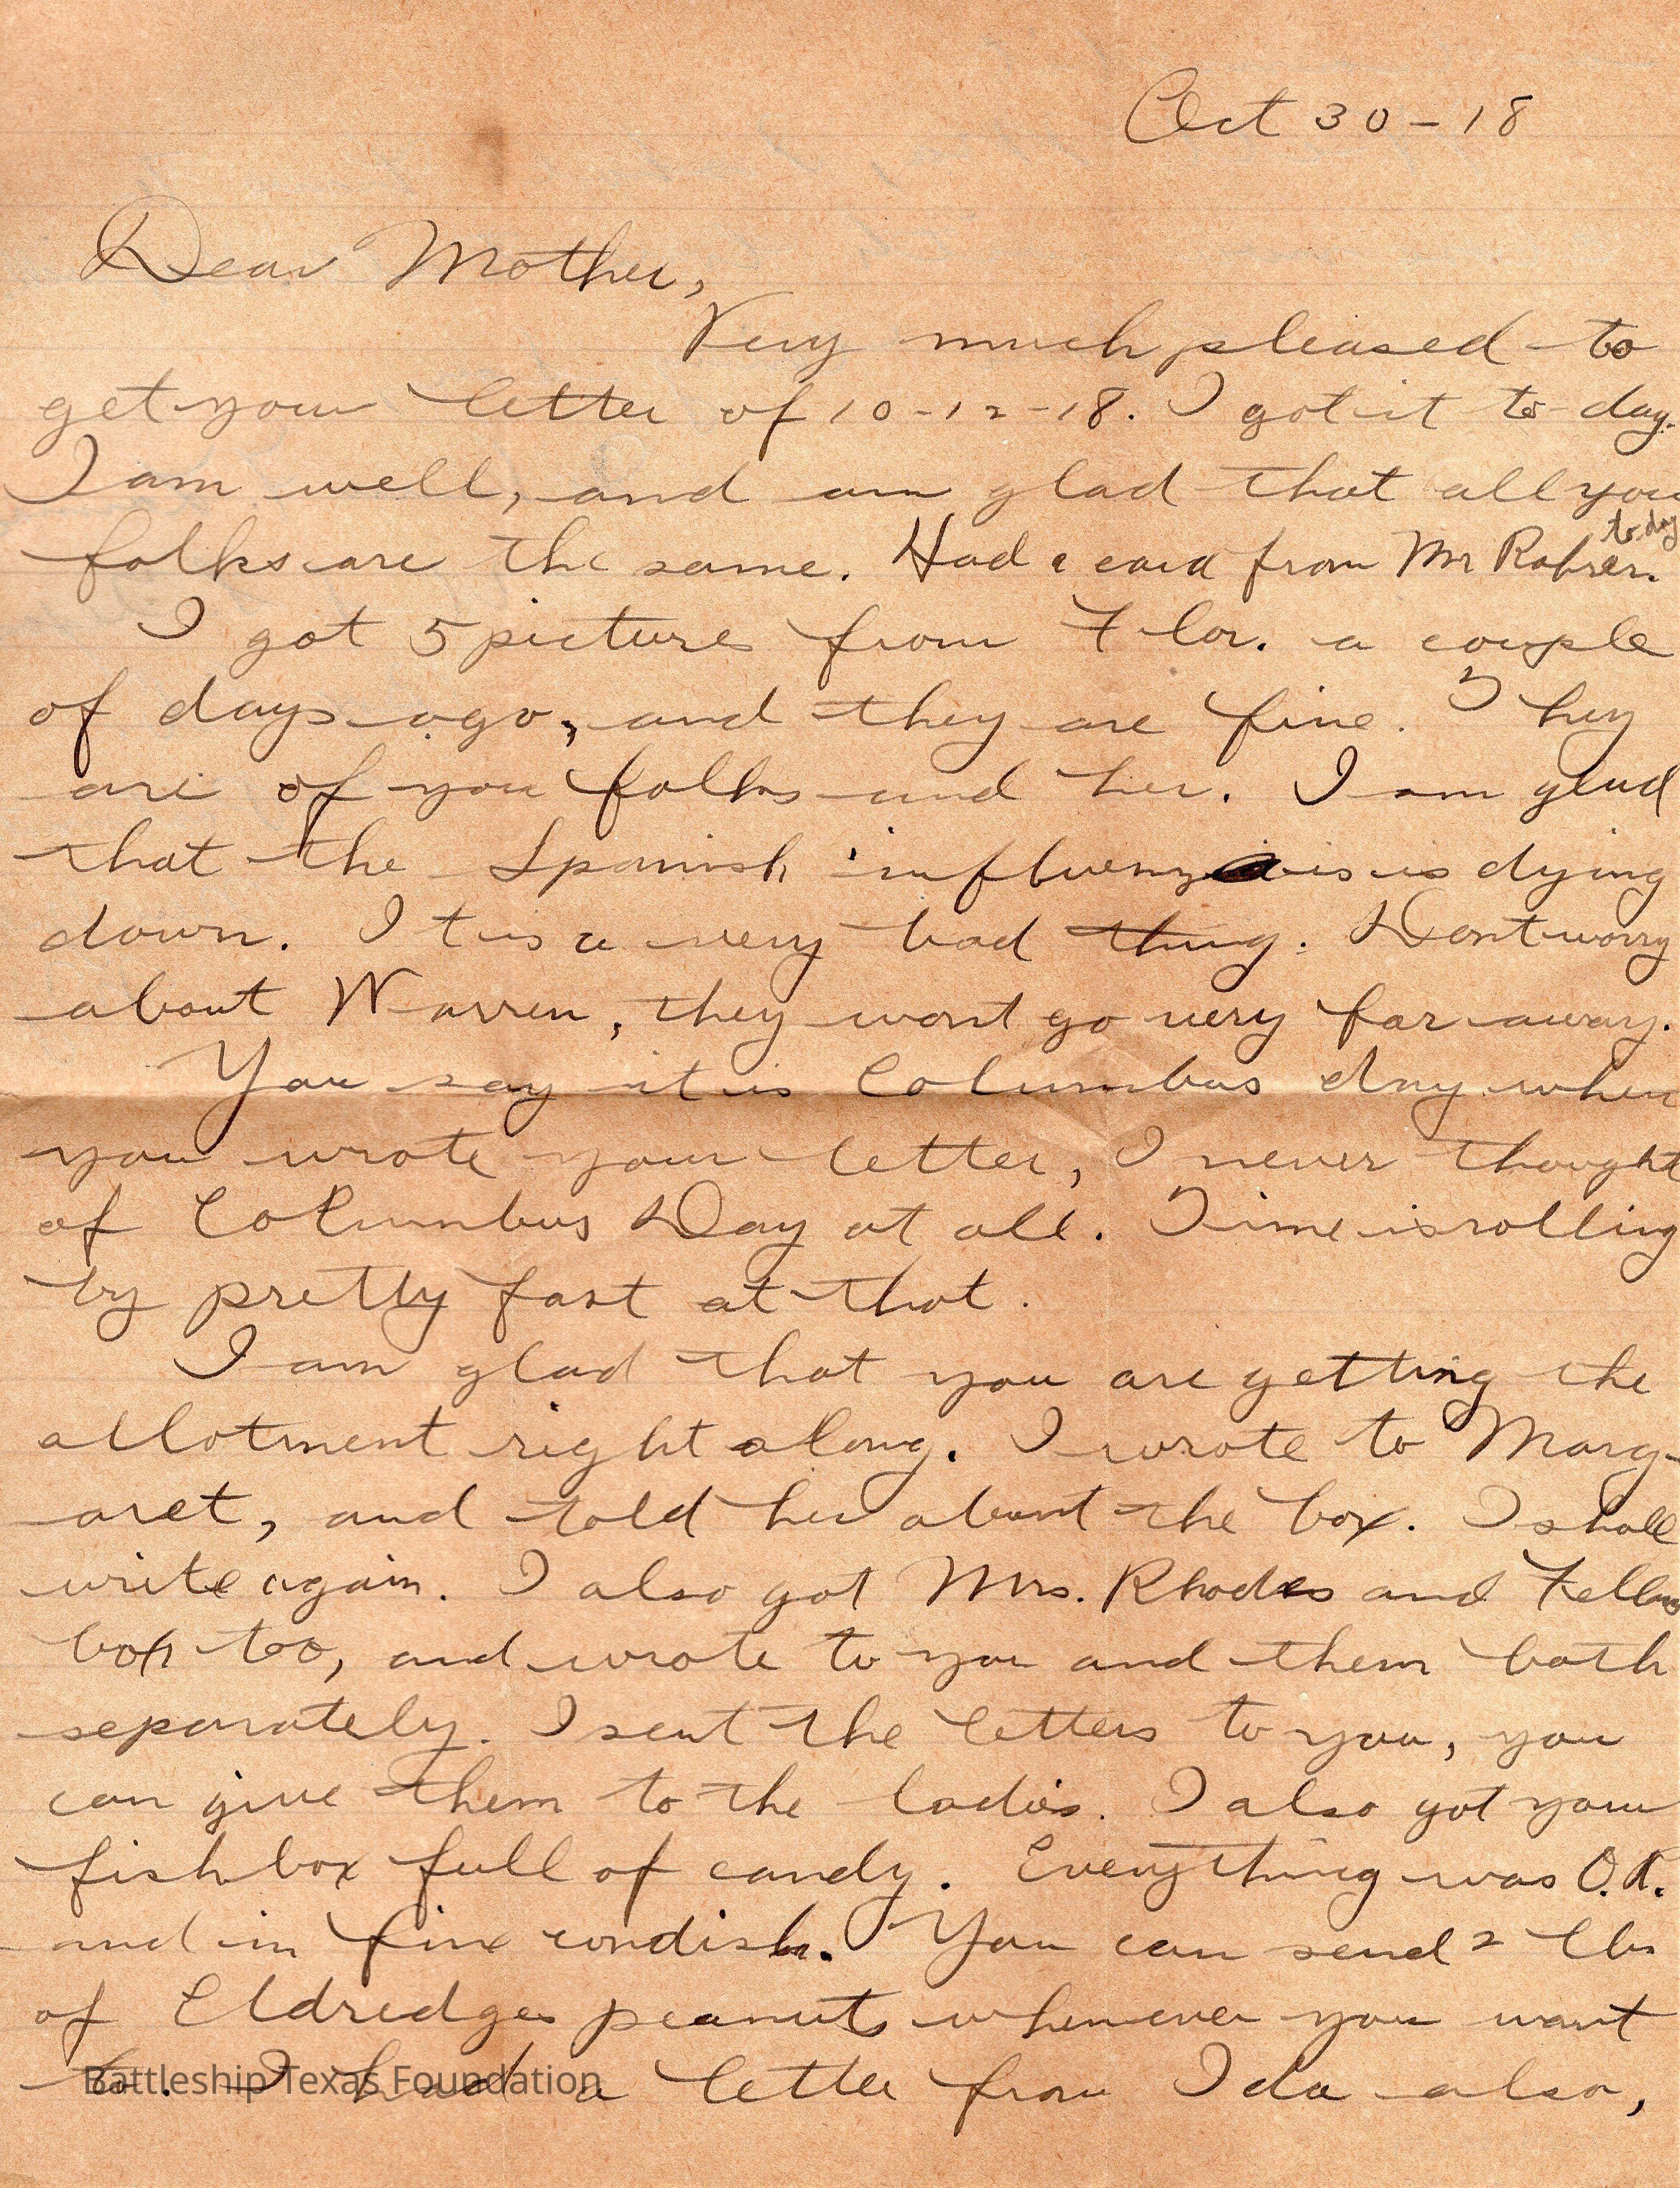 Oct 30-18
Dear Mother,
Very much pleased to
get your letter of 10-12-18. I got it to-day.
I am well, and am glad that all you
to-day
folks are the same. Had a card from Mr Rohrer.
I got 5 picture from Flor. a couple
of days ago, and they are fine. They
are of you folks and her. I am glad
that the Spanish influenza is is dying
down. It is a very bad thing. Dont worry
about Warren, they wont go very far away.
You say it is Columbus day when
you wrote your letter, I never thought
of Columbus Day at all. Time is rolling
by pretty fast at that.
I am glad that you are getting the
allotment right along. I wrote to Marg-
aret, and told her about the box. I shall
write again. I also got Mrs. Rhodes and
box too, and wrote to you and them both
separately. I sent the letters to you, you
can give them to the ladies. I also got your
fish box full of candy. Everything was O.K.
and in fine condish. You can send 2 lbs
of Eldredges peanuts whenever you want
to. I had a letter from Ida also,
Battleship Texas Foundation